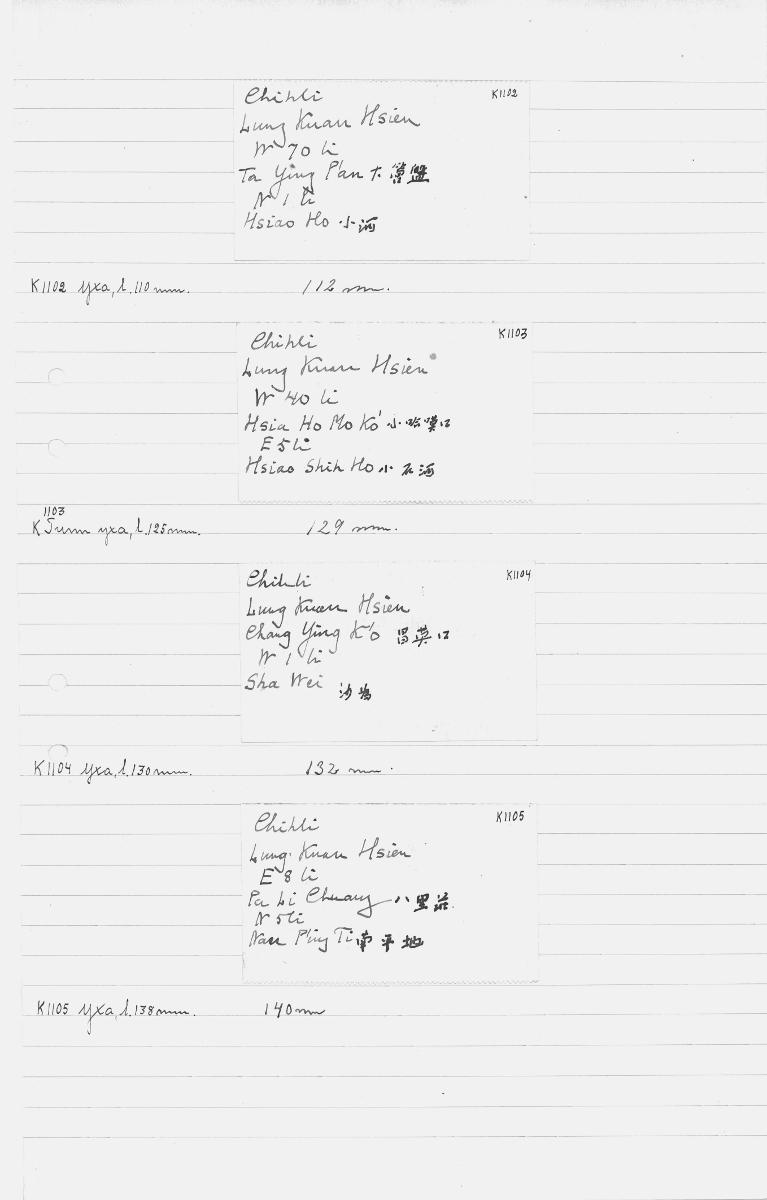 Chihli K1102
Lung Kuan Hsien
W 70 li
Ta Ying P'an 大 營盤
N 1 li
Hsiao Ho 小河
K1102 yxa, l. 110 mm. 112 mm.
Chihli K1103
Lung Kuan Hsien
W 40 li
Hsia Ho Mo Ko' 小哈嘆口
E 5 li
Hsiao Shih Ho 小石河
1103
K yxa, l. 125 mm. 129 mm.
Chihli K1104
Lung Kuan Hsien
Chang Ying K'o 口
W 1 li
Sha Wei 沙
K1104 yxa, l. 130 mm. 132 mm.
Chihli K1105
Lung Kuan Hsien
E 8 li
Pa Li Chuang 八里莊
N 5 li
Nan P'ing Ti 南平地
K1105 yxa, l. 138 mm. 140 mm